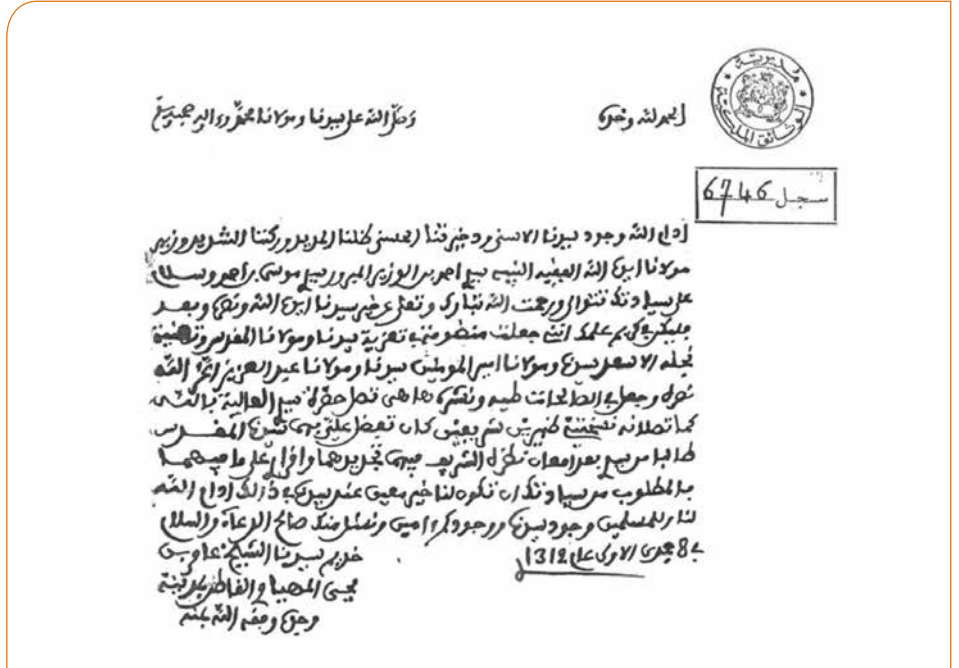 مديرية
الوثائق الملكية
الحمد لله وحده
وصلى الله على سيدنا ومولانا محمد وءاله وصحبه وسلم
سجل 6746
أدام الله وجود سيدنا الاسنى وذخيرتنا الحسنى كفلنا المديد وركننا الشديد وزير
مولانا ايده الله الفقيه النبيه سيدي احمد بن الوزير المبرور سيدي موسى بن احمد وسلام
على سيادتك تتوالى ورحمت الله تبارك وتعلى عن خير سيدنا ايده الله ونصره وبعد
فليكن في كريم علمك انني جعلت منظومة في تعزية سيدنا ومولانا المقدس وتهنية
نجله الاسعد سيدنا ومولانا امير المومنين سيدنا ومولانا عبد العزيز اعز الله
نصره وجعل في الصالحات طيه ونشره ها هي تصل حضرة سيدي العالية بالله
كما تصلانه نسختي ظهيرين شريفين كان تفضل علي بهما سيدنا المقدس
طالبا من سيدي بعد امعان نظره الشريف فيهما تجديدهما واقراري على ما فيهما
فالمطلوب من سيادتك ان تكون لنا خير معين عند سيدنا في ذالك ادام الله
لنا وللمسلمين وجود سيدنا ووجودكم ءامين ونسئل منك صالح الدعاء والسلام
في 8 جمدى الاولى عام 1312
خديم سيدنا الشيخ
وفقه الله بمنه